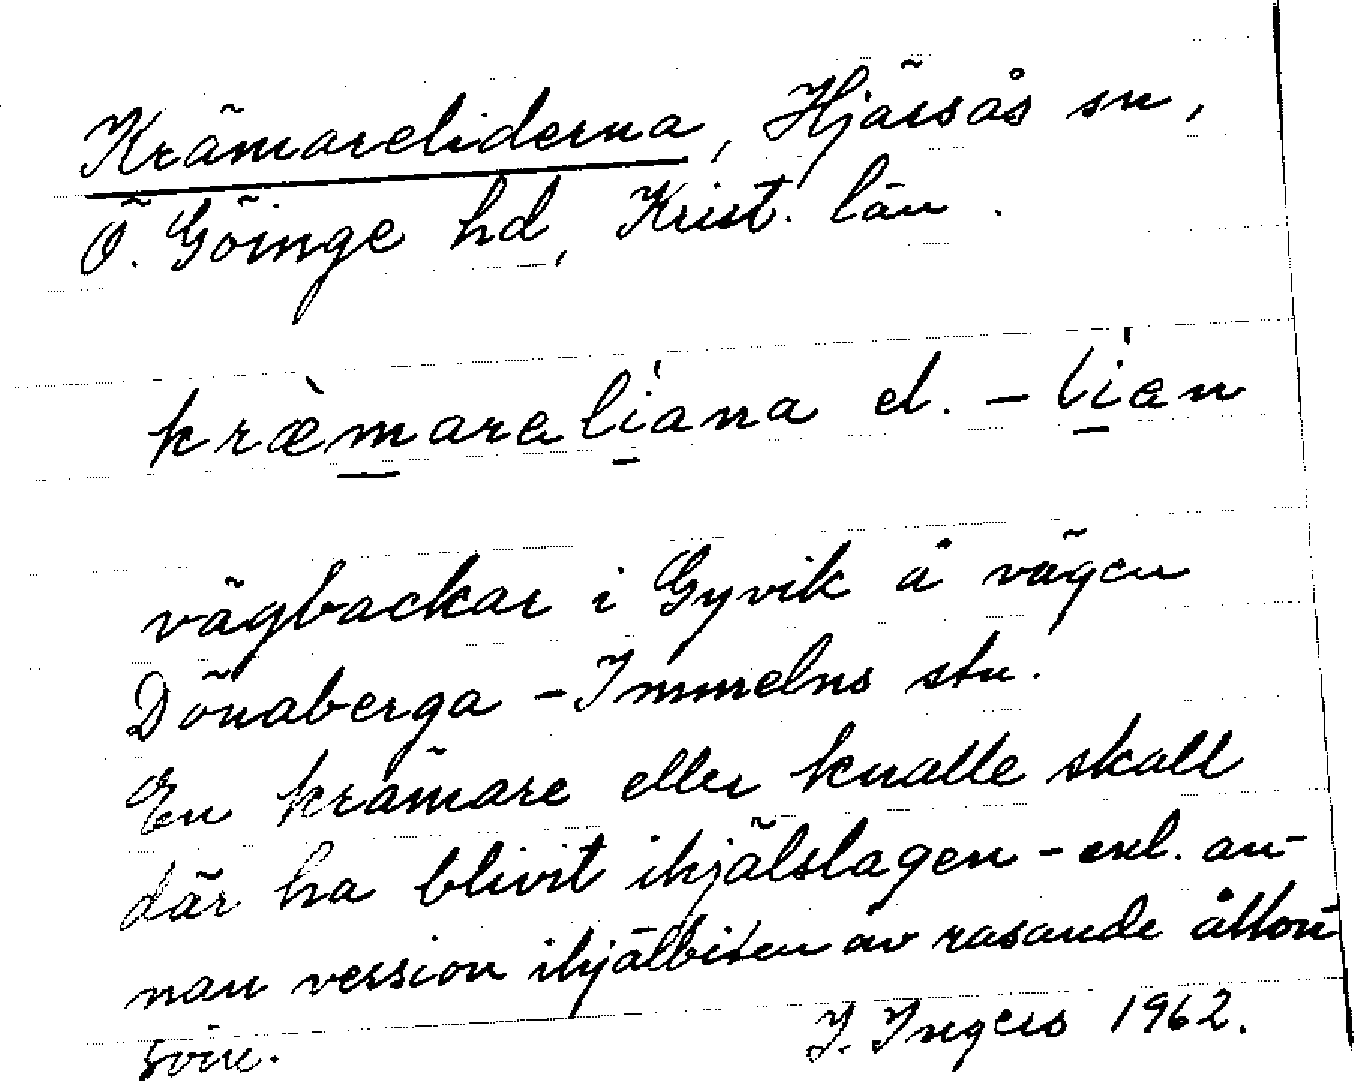 Krämareliderna, Hjärsås sn,
Ö. Göinge hd, Krist. län.
kræ̀mareliana el. - lien
vägbackar i Gyvik å vägen
Dönaberga - Immelns stn.
En krämare eller knalle skall
där ha blivit ihjälslagen - enl. an-
nan version ihjälbiten av rasande ållon-
svin.
I. Ingers 1962.